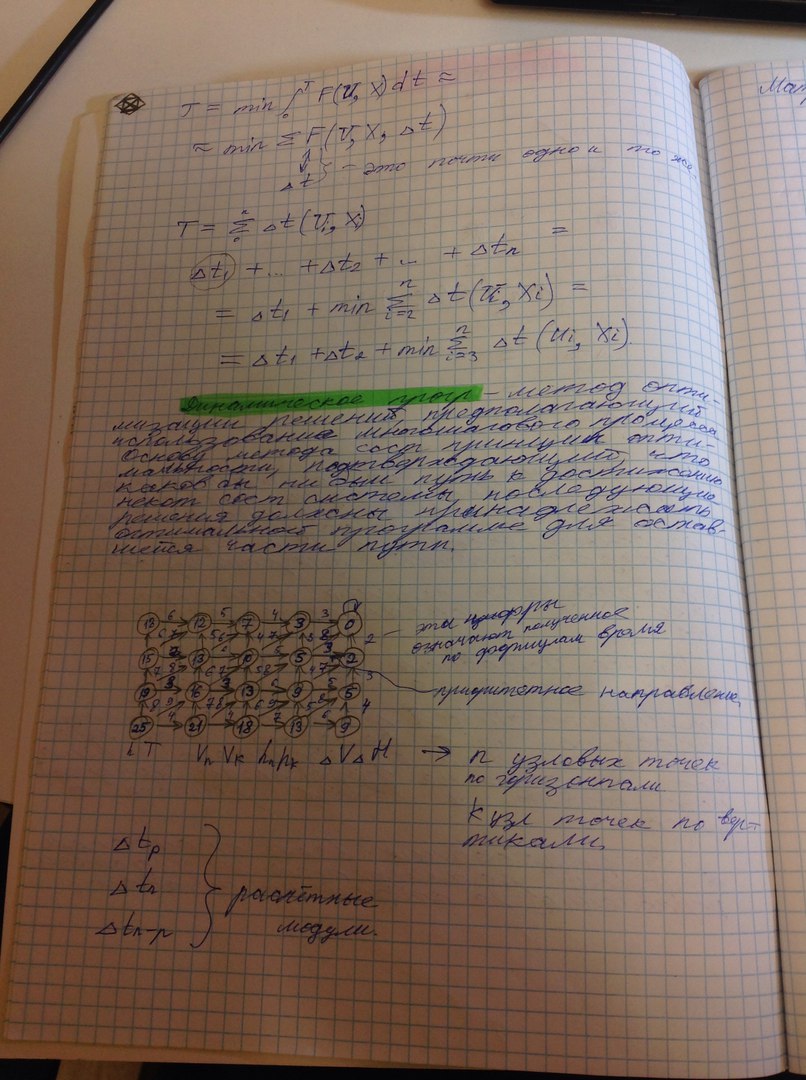 T = min ∫₀ᵀ F(U, X) dt ≈
≈ min Σ F(U, X, Δt)
Δt } - это почти одно и то же.
T = Σ₀ⁿ Δt (Ui, Xi)
Δt₁ + ... + Δt₂ + ... + Δtn =
= Δt₁ + min Σⁿᵢ₌₂ Δt (Ui, Xi) =
= Δt₁ + Δt₂ + min Σⁿᵢ₌₃ Δt (Ui, Xi)
Динамическое прогр - метод опти-
мизации решений предполагающий
использование многошагового процесса
основу метода сост принцип опти-
мальности, подтверждающий, что
каков бы ни был путь к достижению
некот сост системы, последующие
решения должны принадлежать
оптимальной программе для остав-
шейся части пути.
13 6 12 5 7 4 3 3 0
эти цифры
означают полученное
по формулам время
15 13 5 2
приоритетное направление
19 16 13 9 5
25 21 18 13 9
i T Vn Vk hn hk ΔV ΔH → n узловых точек
по горизонтали
k узл точек по вер-
тикали,
Δtp
Δtn
Δtn-p
расчётные
модули.
Мат